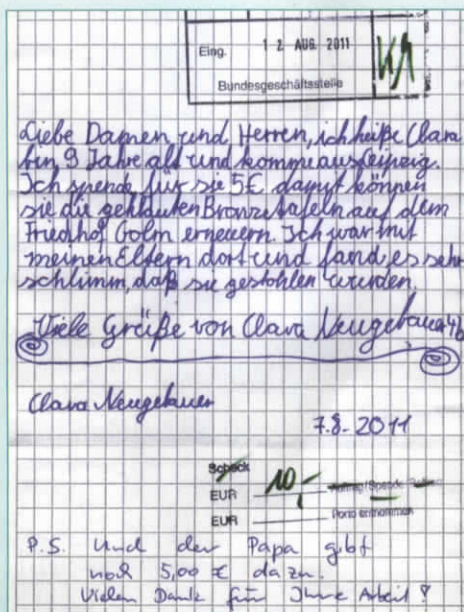 Eing. 12 AUG. 2011
Bundesgeschäftsstelle
Liebe Damen und Herren, ich heiße Clara
bin 9 Jahre alt und komme aus Leipzig.
Ich spende für sie 5€ damit können
sie die geklauten Bronzetafeln auf dem
Friedhof Golm erneuern. Ich war mit
meinen Eltern dort und fand es sehr
schlimm, daß sie gestohlen wurden.
Viele Grüße von Clara Neugebauer 4b
Clara Neugebauer
7.8.2011
Scheck
EUR 10,-
EUR Porto entnommen
P.S. Und der Papa gibt
noch 5,00 € dazu.
Vielen Dank für Ihre Arbeit!